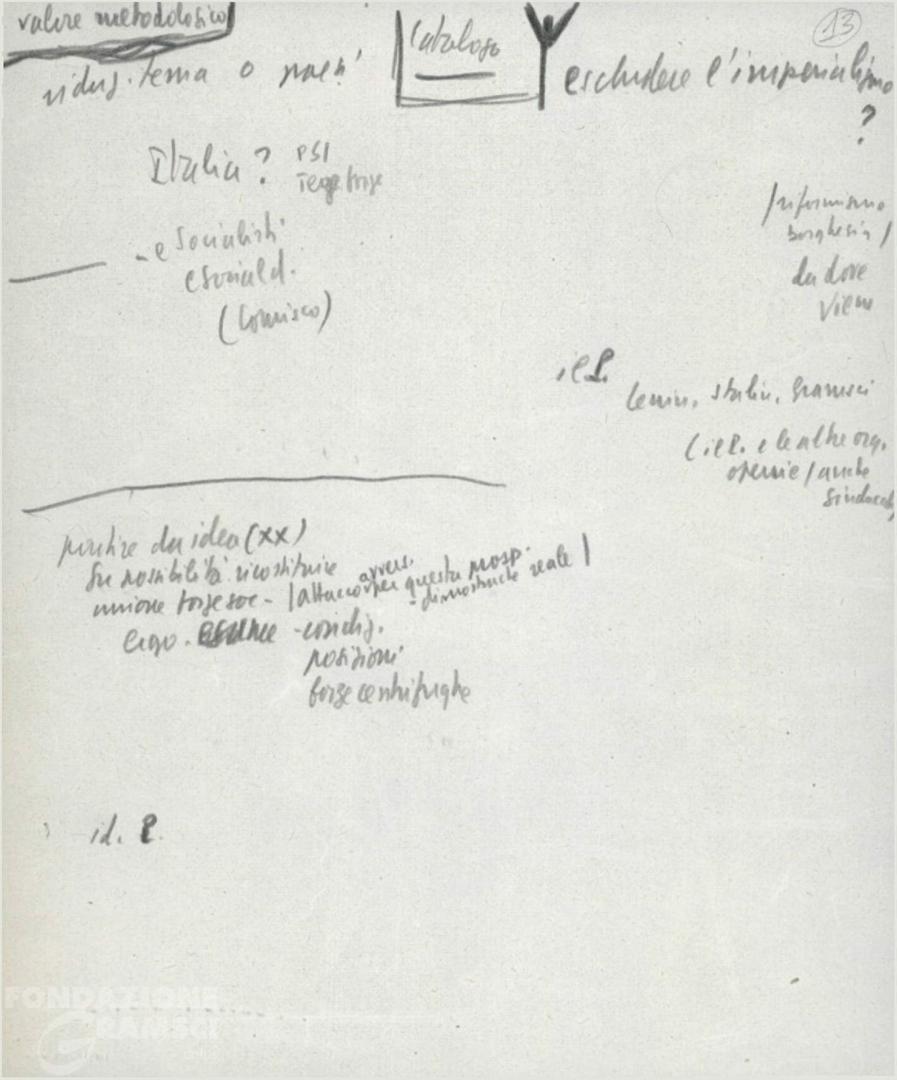 valore metodologico
riduz. tema o paesi
Catalogo
13
escludere l'imperialismo
?
Italia? PSI
Terze forze
- e Socialisti
e sociald.
(Comisco)
/riformismo
borghesia/
da dove
viene
il P.
Lenin, Stalin, Gramsci
(il P. e le altre org.
operaie / anche
sindacati
partire da idea (xx)
su possibilità ricostruire
unione forze soc - /attacco avvers. per questa prosp.
- dimostrarle reale/
ergo - - condiz.
posizioni
forze centrifughe
id. P.
FONDAZIONE
GRAMSCI